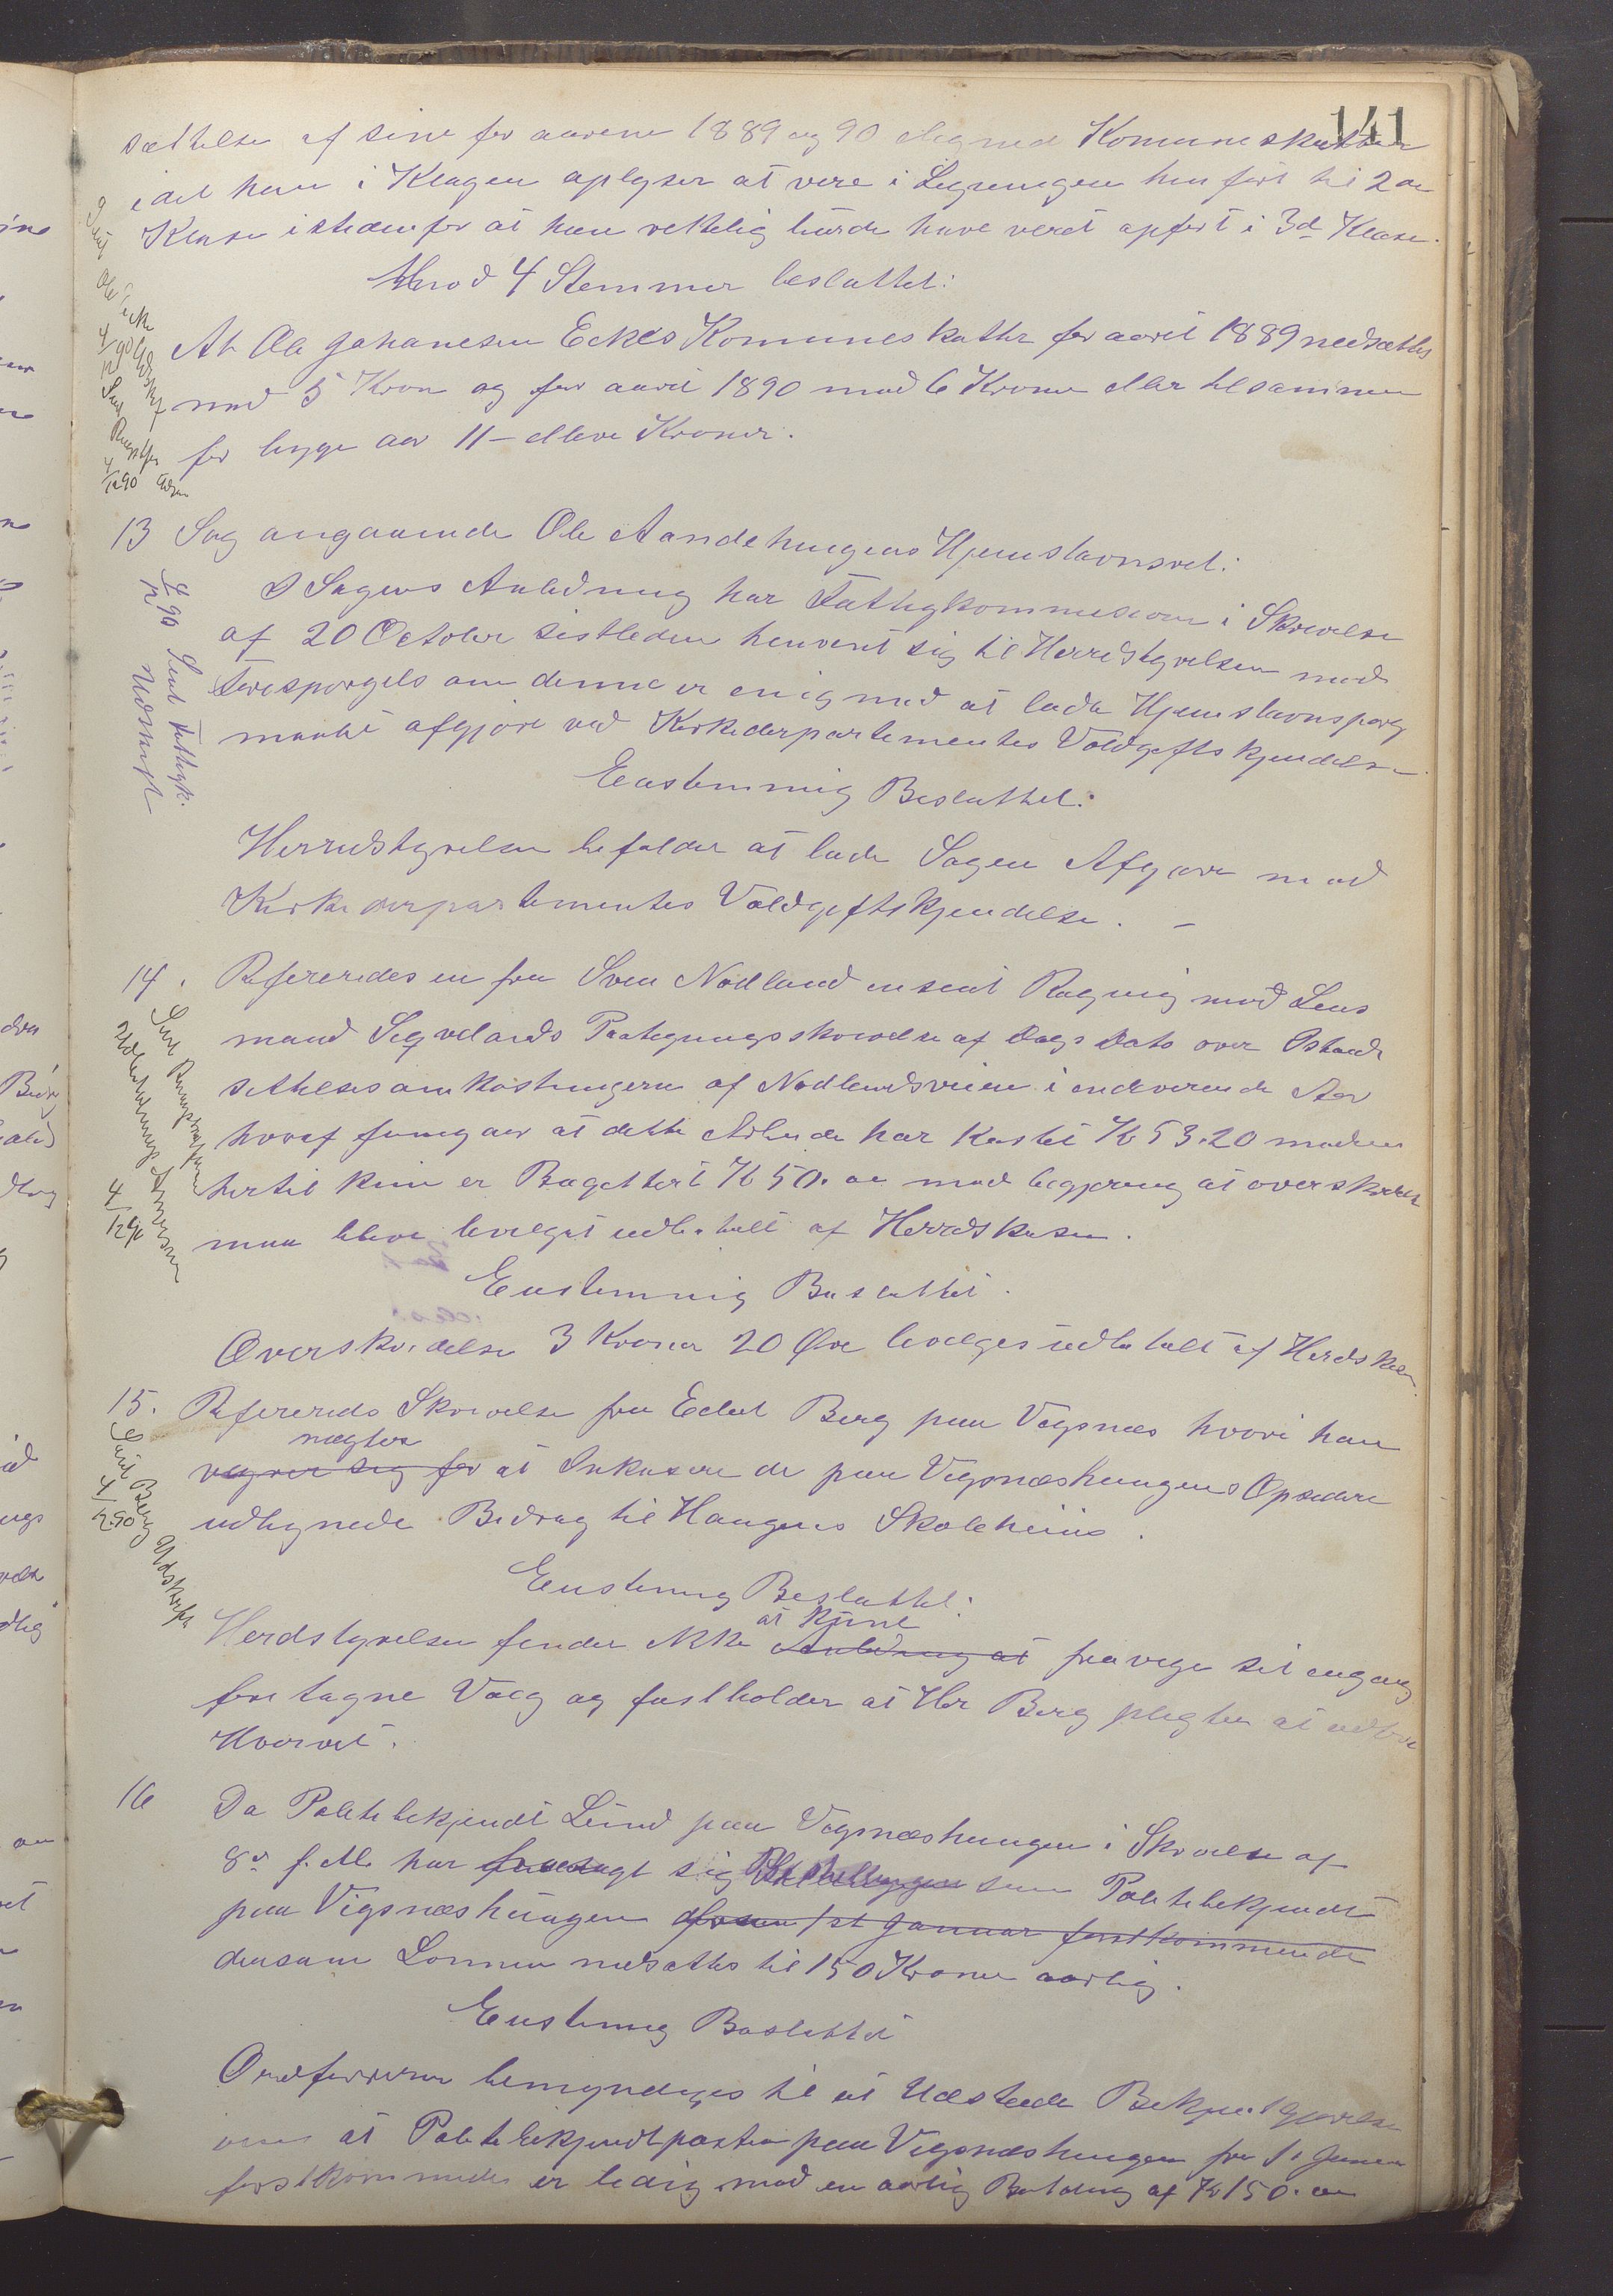 141
sættelse af sine for aarene 1889 og 90 Komuneskatter
idet han i Klagen oplyser at være i Ligningen henført til 2en
Klase istedenfor at han rettelig burde have veret opført i 3d Klase.
Mod 4 Stemmer besluttet:
At Ole Johanesen Eekes Komuneskatte for aaret 1889 nedsættes
med 5 Kron og for aaret 1890 med 6 Kroner eller tilsammen
for begge aar 11 - elleve Kroner.
Sent Ole Eeke
4/12 90 Udskrift
Sent Regnskfør
4/12 90
13 Sag angaaende Ole Aandehaugens Hjemstavnsret:
I Sagens Anledning har Fattigkommission i Skrivelse
af 20 October sistleden henvent sig til Herredstyrelsen med
Forespørgels om denne er enig med at lade Hjemstavnsspørg
maalet afgjøre ved Kirkederpartementes Voldgiftskjendelse
4/12 90 Sent Fattigk.
Udskrift
Enstemmig Besluttet:
Herredstyrelsen befalder at lade Sagen Afgjøre med
Kirkederpartementes Voldgiftskjendelse. -
14. Refereredes en fra Sven Nødland ensent Regning med Lens
mand Sigvelands Paategningsskrivelse af Dags Dato over Istand
settelsesomkostningerne af Nødlandsveien i indeverende Aar
hvoraf fremgaar at dette Arbeide har kostet Kr 53.20 medens
hertil kun er Bugettert Kr 50. med begjering at overskridelse
maa blive bevilget udbetalt af Herredskasen.
Sent Regnskabsfører
Udbetalings
4/12 90
Enstemmig Besluttet.
Overskridelse 3 Kroner 20 Øre bevilges udbetalt af Herdskasen.
15. Refereredes Skrivelse fra Edert Berg paa Vigsnæs hvori han
nægter
vægrer sig for at Inkasere de paa Vigsnæshaugens Opsidere
udlignede Bidrag til Haugens Skolehuus.
Sent Berg Udskrift
4/12 90
Enstemig Besluttet:
at kune
Herdstyrelsen finder ikke Anledning at fravige sit engang
foretagne Valg og fastholder at Hr Berg pligter at udføre
Hvervet.
16 Da Politibekjendt Lund paa Vigsnæshaugen i Skrivelse af
8de f. M. har frasagt sig Bestillingen som Politibekjendt
paa Vigsnæshaugen 1st Januar førstkommende
dersom Lønnen nedsættes til 150 Kroner aarlig.
Enstemig Besluttet
Ordføreren bemyndiges til at Udstede Bekjentgjørelse
om at Politibekjendtposten paa Vigsnæshaugen fra 1 Januar
førstkommende er ledig med en aarlig Betaling af Kr 150.